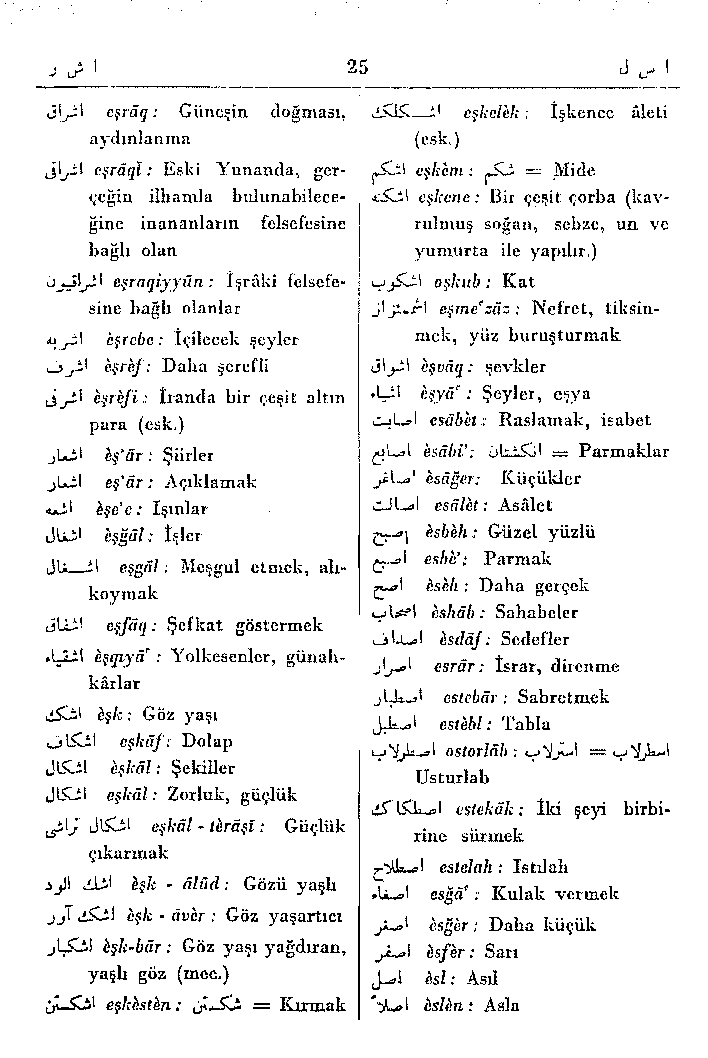 ا ش ر 25 ا س ل
اشراق eşrāq: Güneşin doğması,
aydınlanma
اشراقى eşrāqī: Eski Yunanda, ger-
çeğin ilhamla bulunabilece-
ğine inananların felsefesine
bağlı olan
اشراقيون eşraqiyyūn: İşrâki felsefe-
sine bağlı olanlar
اشربه èşrebe: İçilecek şeyler
اشرف èşrèf: Daha şerefli
اشرفى èşrèfi: İranda bir çeşit altın
para (esk.)
اشعار èş'ār: Şiirler
اشعار eş'ār: Açıklamak
اشعه èşe'e: Işınlar
اشغال èşğāl: İşler
اشــغال eşgāl: Meşgul etmek, alı-
koymak
اشفاق eşfāq: Şefkat göstermek
اشقياء èşqıyāʿ: Yolkesenler, günah-
kârlar
اشك èşk: Göz yaşı
اشكاف eşkāf: Dolap
اشكال èşkāl: Şekiller
اشكال eşkāl: Zorluk, güçlük
اشكال تراشى eşkāl - tèrāşī: Güçlük
çıkarmak
اشك الود èşk - ālūd: Gözü yaşlı
اشك آور èşk - āvèr: Göz yaşartıcı
اشكبار èşk-bār: Göz yaşı yağdıran,
yaşlı göz (mec.)
اشكستن eşkèstèn: شكستن = Kırmak
اشــكلك eşkelèk: İşkence âleti
(esk.)
اشكم eşkèm: شكم = Mide
اشكنه eşkene: Bir çeşit çorba (kav-
rulmuş soğan, sebze, un ve
yumurta ile yapılır.)
اشكوب oşkub: Kat
اشمئزاز eşmeʿzāz: Nefret, tiksin-
mek, yüz buruşturmak
اشواق èşvāq: şevkler
اشياء èşyāʿ: Şeyler, eşya
اصابت esābèt: Raslamak, isabet
اصابع èsābi': انكشتان = Parmaklar
اصاغر èsāğer: Küçükler
اصالت esālèt: Asâlet
اصبح èsbèh: Güzel yüzlü
اصبع esbè': Parmak
اصح èsèh: Daha gerçek
اصحاب èshāb: Sahabeler
اصداف èsdāf: Sedefler
اصرار esrār: İsrar, direnme
اصطبار estebār: Sabretmek
اصطبل estèbl: Tabla
اصطرلاب ostorlāb: اسطرلاب = استرلاب
Usturlab
اصطكاك estekāk: İki şeyi birbi-
rine sürmek
اصطلاح estelah: Istılah
اصغاء esğāʿ: Kulak vermek
اصغر èsğèr: Daha küçük
اصفر èsfèr: Sarı
اصل èsl: Asıl
اصلاً èslèn: Asla